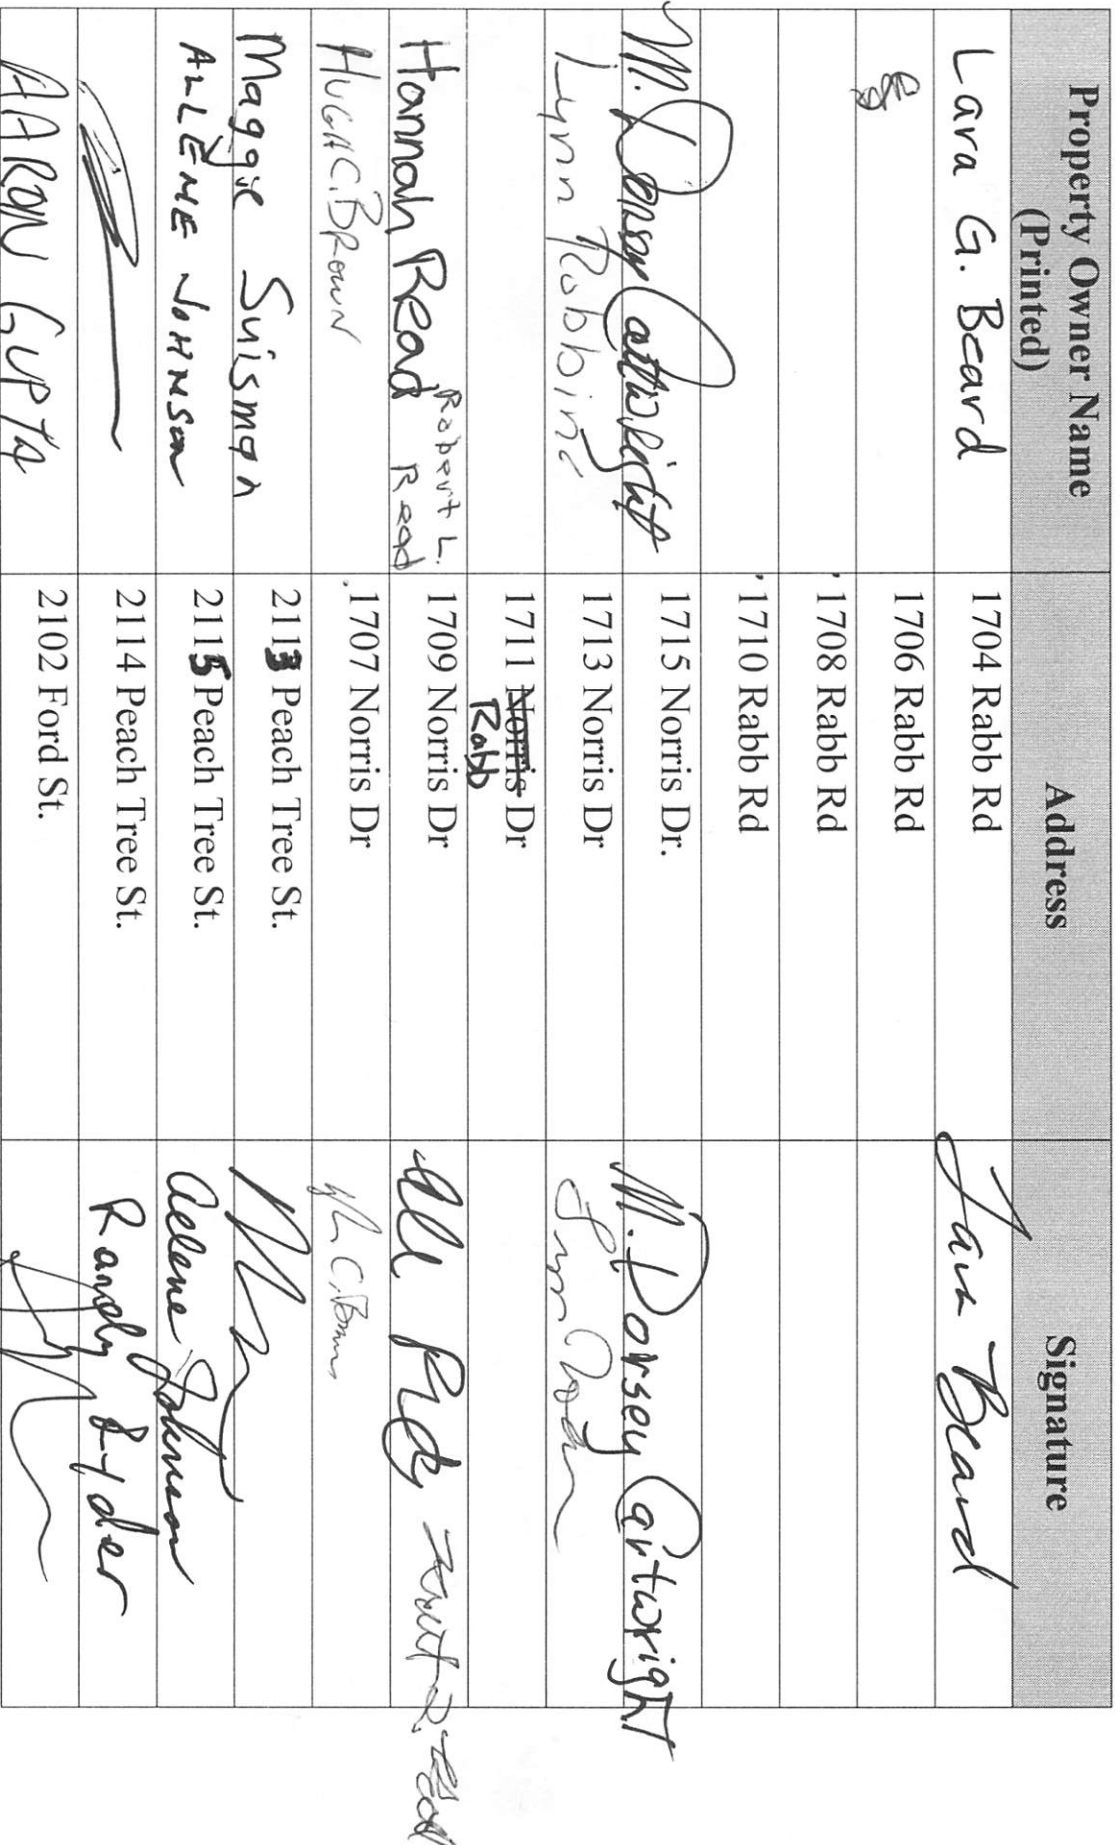 Property Owner Name (Printed) Address Signature
Lara G. Beard 1704 Rabb Rd Lara Beard
1706 Rabb Rd
1708 Rabb Rd
1710 Rabb Rd
M. Dorsey Cartwright 1715 Norris Dr. M. Dorsey Cartwright
Lynn Robbins 1713 Norris Dr Lynn
1711 Norris Dr
Rabb
Hannah Read Robert L. Read 1709 Norris Dr
HUGH C. BROWN 1707 Norris Dr C. Brown
Maggie Suisman 2113 Peach Tree St.
ALLENE JOHNSON 2115 Peach Tree St. Allene Johnson
2114 Peach Tree St. Randy
AARON GUPTA 2102 Ford St.